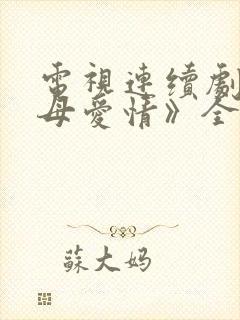 電視連續劇
母愛情》全
蘇大妈